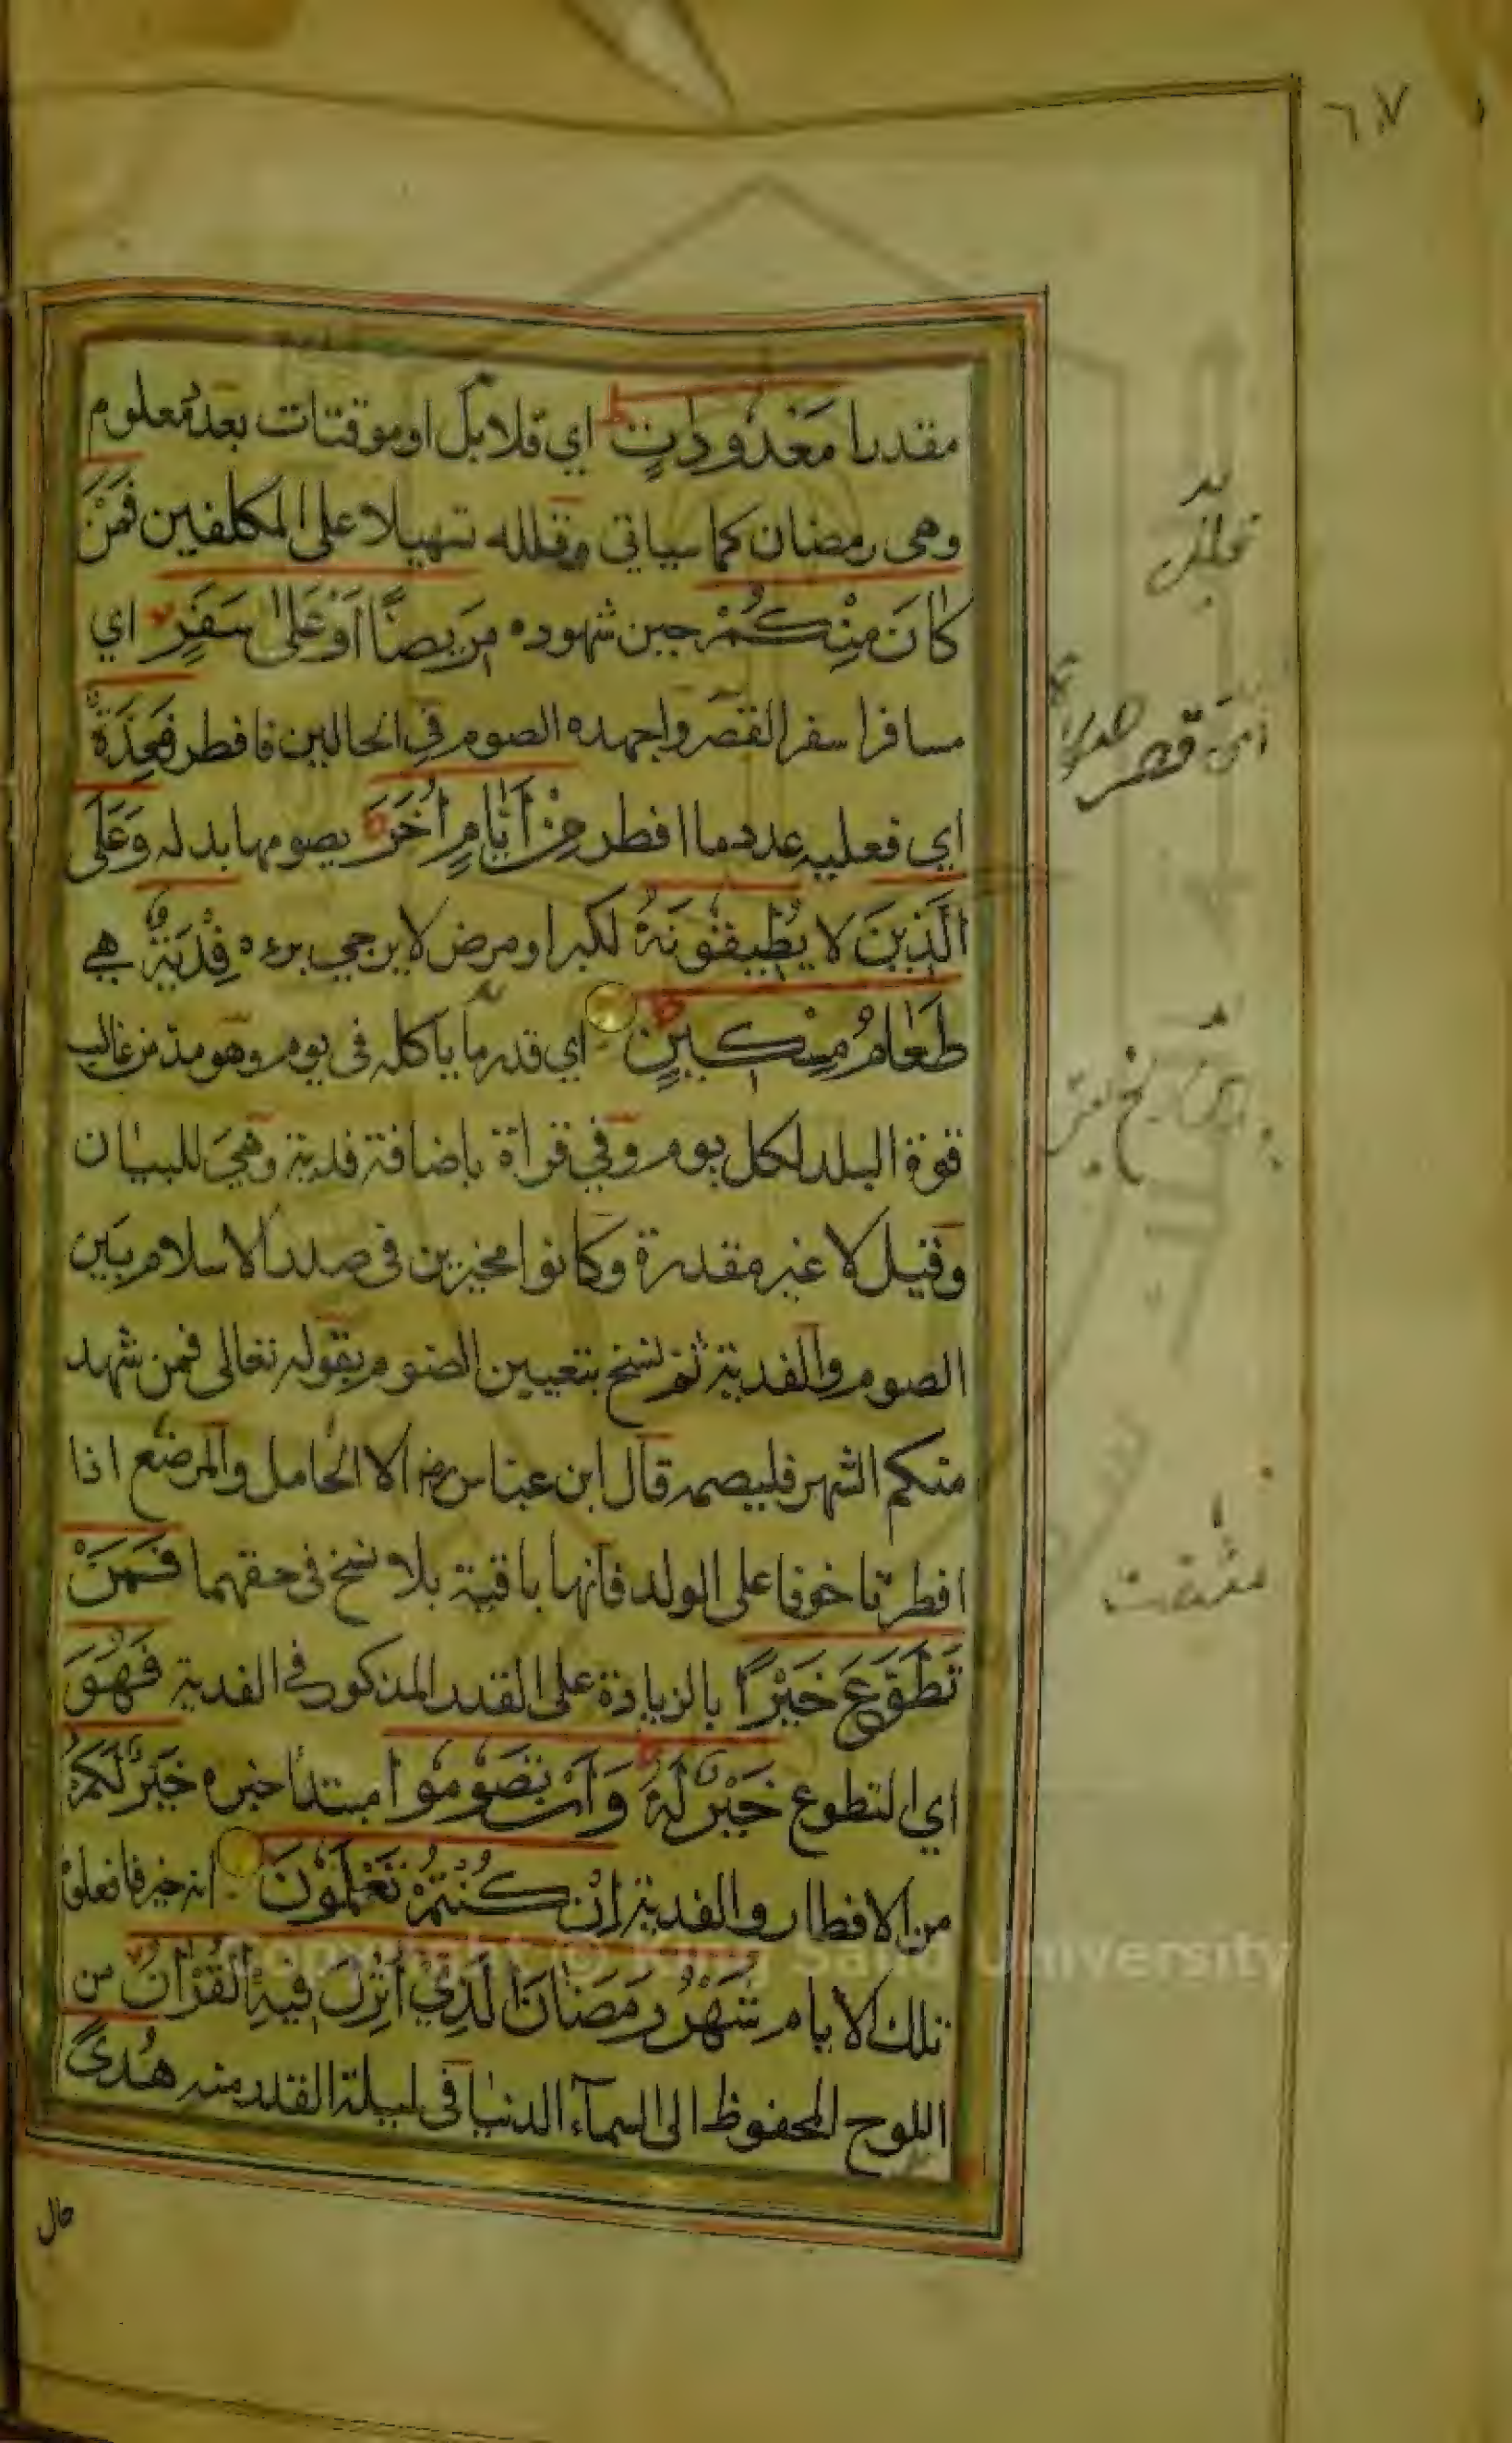 مقدرا مَعْدُودَاتٍ اي قلائل او موقتات بعدد معلوم
وهى رمضان كما سياتى وقلله تسهيلا على المكلفين فَمَنْ
كَانَ مِنْكُمْ حين شهوده مَرِيضًا أَوْ عَلَىٰ سَفَرٍ اي
مسافرا سفر القصر واجهده الصوم في الحالين فافطر فَعِدَّةٌ
اي فعليه عدد ما افطر مِنْ أَيَّامٍ أُخَرَ يصومها بدله وَعَلَى
الَّذِينَ لا يُطِيقُونَهُ لكبر او مرض لا يرجي برءه فِدْيَةٌ هي
طَعَامُ مِسْكِينٍ اي قدر ما ياكله فى يوم وهو مد من غالب
قوة البلد لكل يوم وفي قراة باضافة فدية وهي للبيان
وقيل لا غير مقدرة وكانوا مخيرين فى صدر الاسلام بين
الصوم والفدية ثم نسخ بتعيين الصوم بقوله تعالى فمن شهد
منكم الشهر فليصمه قال ابن عباس رضه الا الحامل والمرضع اذا
افطرتا خوفا على الولد فانها باقية بلا نسخ فى حقهما فَمَنْ
تَطَوَّعَ خَيْرًا بالزيادة على القدر المذكور في الفدية فَهُوَ
اي التطوع خَيْرٌ لَهُ وَأَنْ تَصُومُوا مبتدأ خبره خَيْرٌ لَكُمْ
من الافطار والفدية إِنْ كُنْتُمْ تَعْلَمُونَ انه خير فافعلوه
تلك الايام شَهْرُ رَمَضَانَ الَّذِي أُنْزِلَ فِيهِ الْقُرْآنُ من
اللوح المحفوظ الى السمآء الدنيا فى ليلة القدر منه هُدًى
حال
Copyright © King Saud University